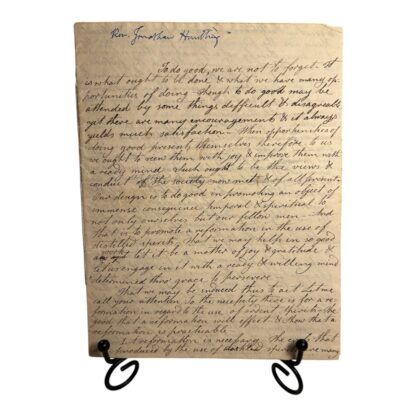 Rev. Jonathan Huntting
To do good, we are not to forget. It
is what ought to be done & what we have many op-
portunities of doing. Though to do good may be
attended by some things difficult & disagreeable
yet there are many encouragements & it always
yields much satisfaction. When opportunities of
doing good present themselves therefore to us
we ought to view them with joy & improve them with
a ready mind. Such ought to be the views &
conduct of the society now met & of all present.
Our design is to do good in promoting an object of
immense consequence temporal & spiritual to
not only ourselves but our fellow men. And
that is to promote a reformation in the use of
distilled spirits, that we may help in so good
a work let it be a matter of joy & gratitude &
let us engage in it with a ready & willing mind
determined thro' grace to persevere.
That we may be induced thus to act Let me
call your attention To the necessity there is for a re-
formation in regard to the use of ardent spirits, the
good that a reformation will effect & show that a
reformation is practicable.
1. A reformation is necessary. The evils that
produced by the use of spirits are many